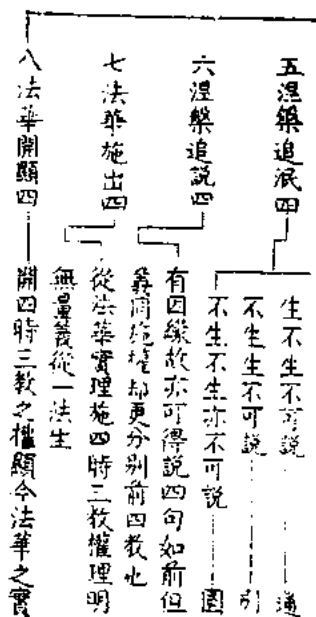 五涅槃追泯四
生不生不可說 通
不生生不可說 別
不生不生亦不可說 圓
六涅槃追說四
有因緣故亦可得說四句如前但
義同施權却更分別前四教也
七法華施出四
從法華實理施四時三教權理明
無量義從一法生
八法華開顯四
開四時三教之權顯今法華之實